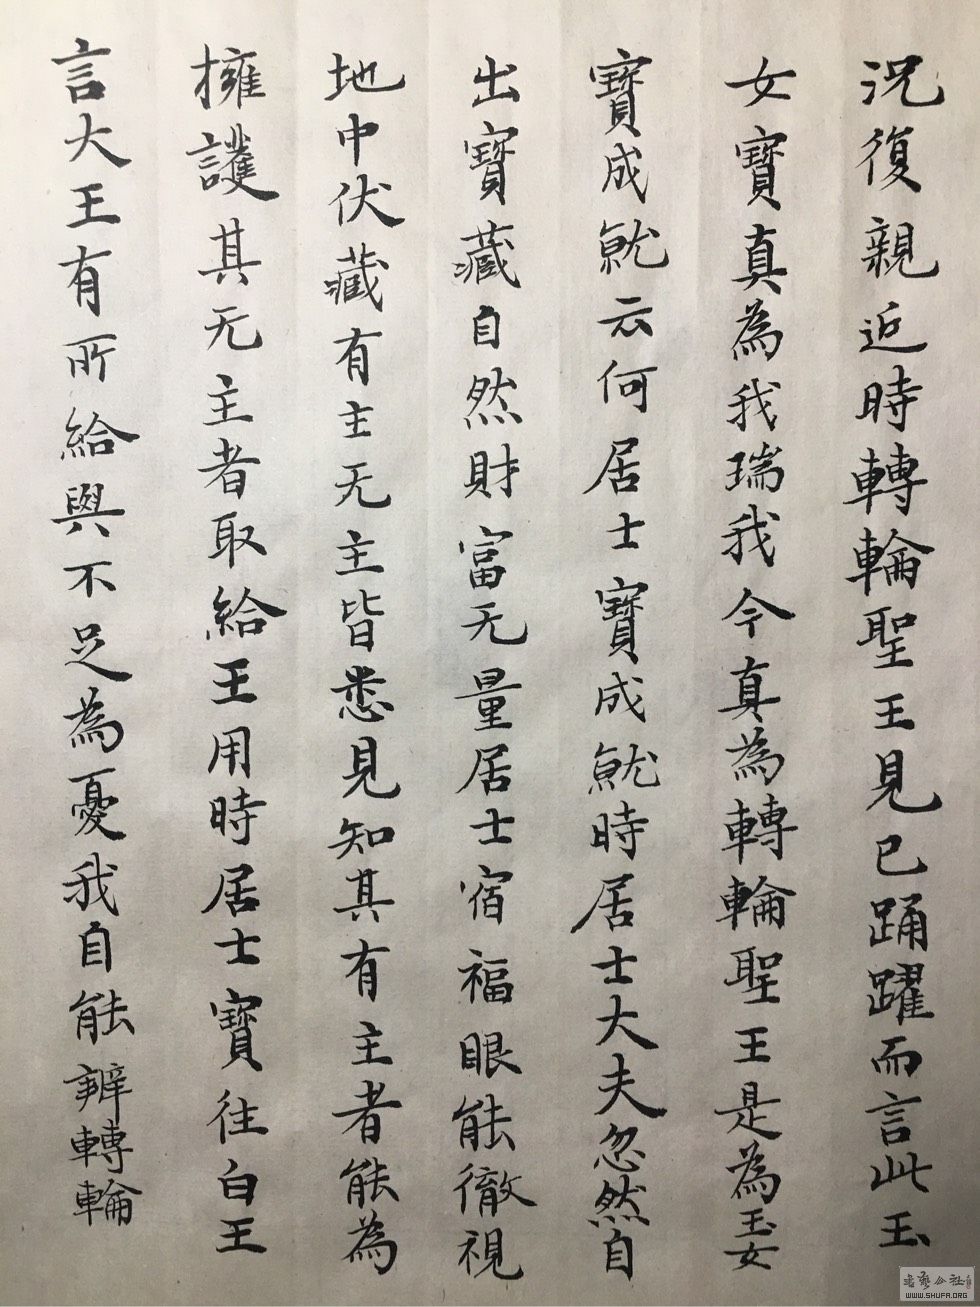 況復親近時轉輪聖王見已踊躍而言此玉
女寶真為我瑞我今真為轉輪聖王是為玉女
寶成就云何居士寶成就時居士大夫忽然自
出寶藏自然財富无量居士宿福眼能徹視
地中伏藏有主无主皆悉見知其有主者能為
擁護其无主者取給王用時居士寶往白王
言大王有所給與不足為憂我自能辨轉輪
書藝公社
WWW.SHUFA.ORG